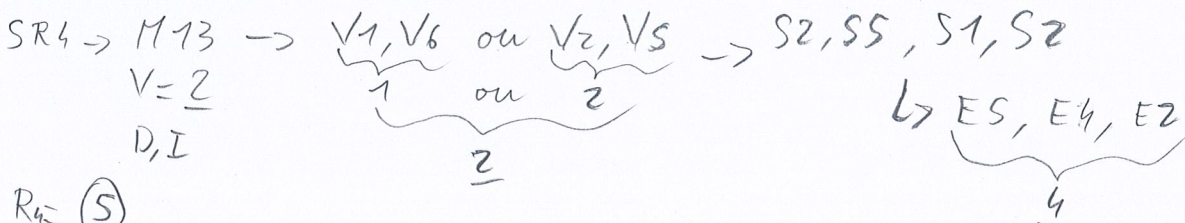 SR4 -> M13 -> V1, V6 ou V2, V5 -> S2, S5, S1, S2
V = 2 1 ou 2 L> E5, E4, E2
D, I 2 4
R4 = 5